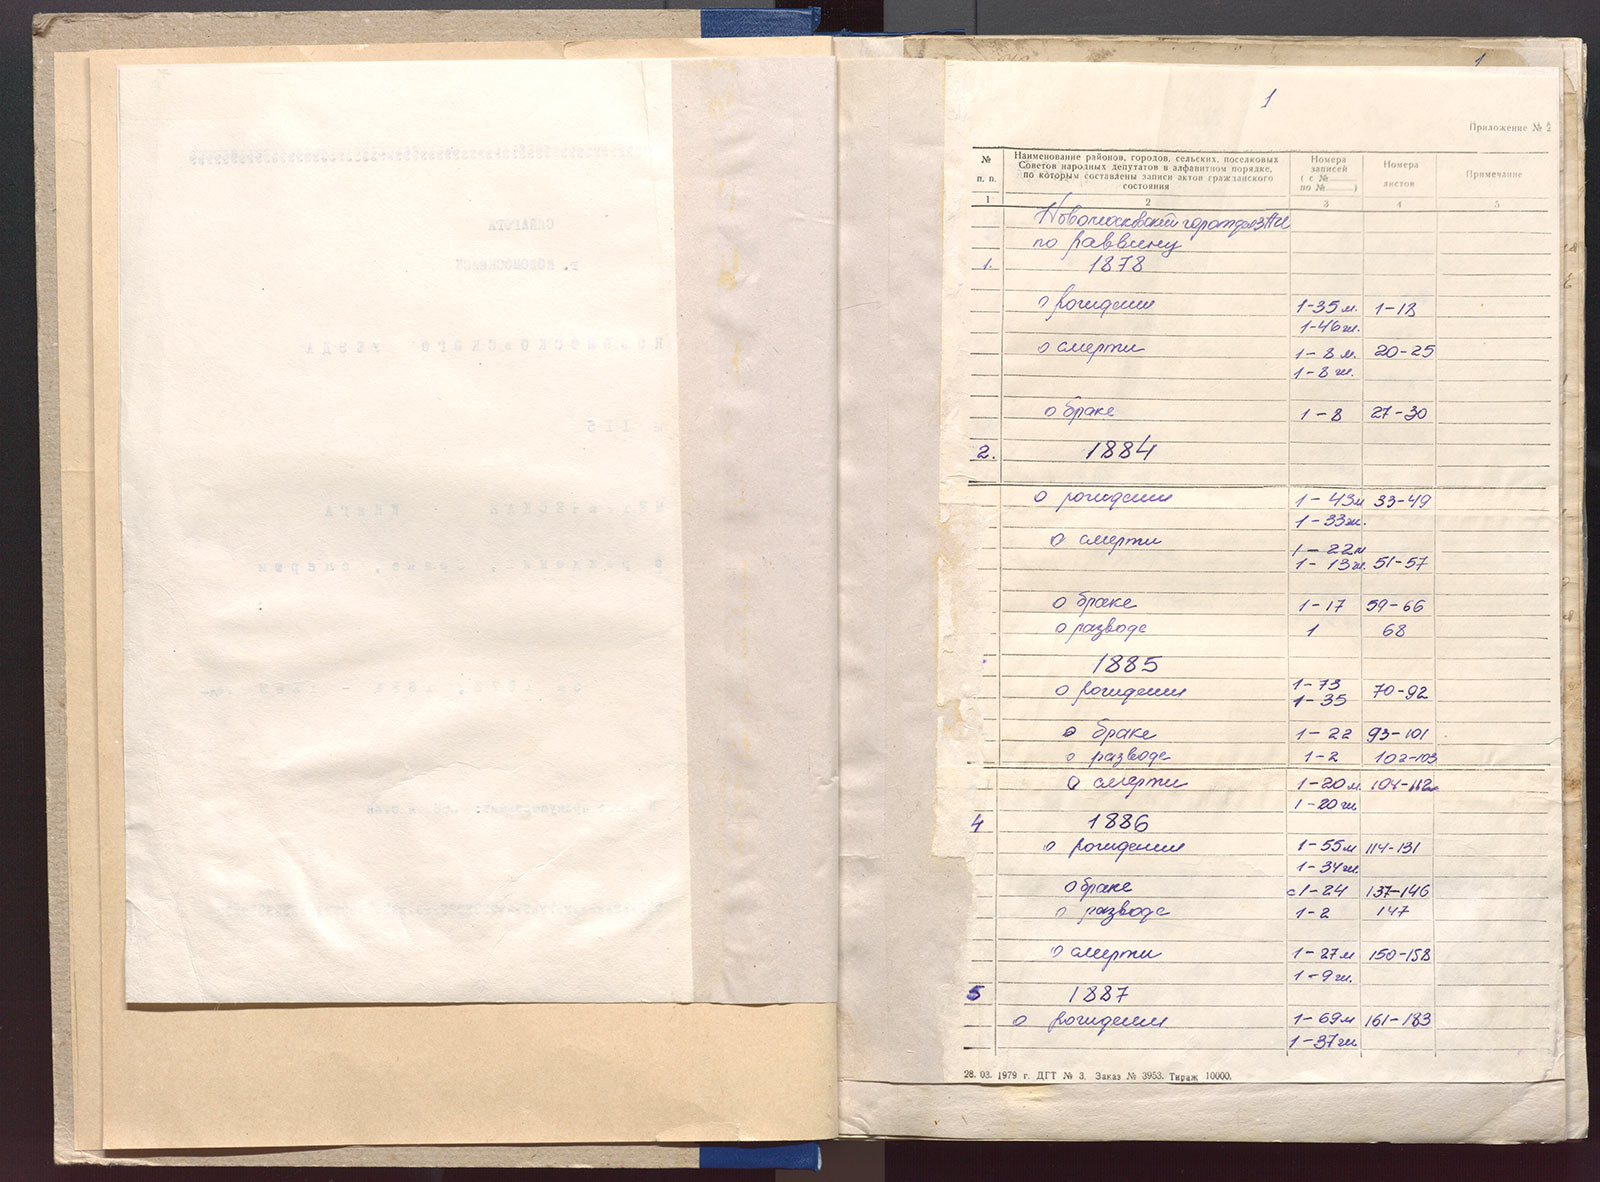 СИНАГОГА
г. НОВОМОСКОВСК
НОВОМОСКОВСКОГО УЕЗДА
№ 115
МЕТРИЧЕСКАЯ КНИГА
о рождении, браке, смерти
1
1
Приложение № 2
№ п. п.
Наименование районов, городов, сельских, поселковых
Советов народных депутатов в алфавитном порядке,
по которым составлены записи актов гражданского
состояния
Номера
записей
( с №
по № )
Номера
листов
Примечание
1 2 3 4 5
Новомосковский
по раввину
1. 1878
о рождении 1-35 м. 1-18
1-46 ж.
о смерти 1-8 м. 20-25
1-8 ж.
о браке 1-8 27-30
2. 1884
о рождении 1-43м 33-49
1-33ж.
о смерти 1-22м
1-13ж. 51-57
о браке 1-17 59-66
о разводе 1 68
1885
о рождении 1-73 70-92
1-35
о браке 1-22 93-101
о разводе 1-2 102-103
о смерти 1-20м. 104-112
1-20ж.
4 1886
о рождении 1-55м 114-131
1-34ж.
о браке с1-24 137-146
о разводе 1-2 147
о смерти 1-27м 150-158
1-9ж.
5 1887
о рождении 1-69м 161-183
1-37ж.
28. 03. 1979 г. ДГТ № 3. Заказ № 3953. Тираж 10000.